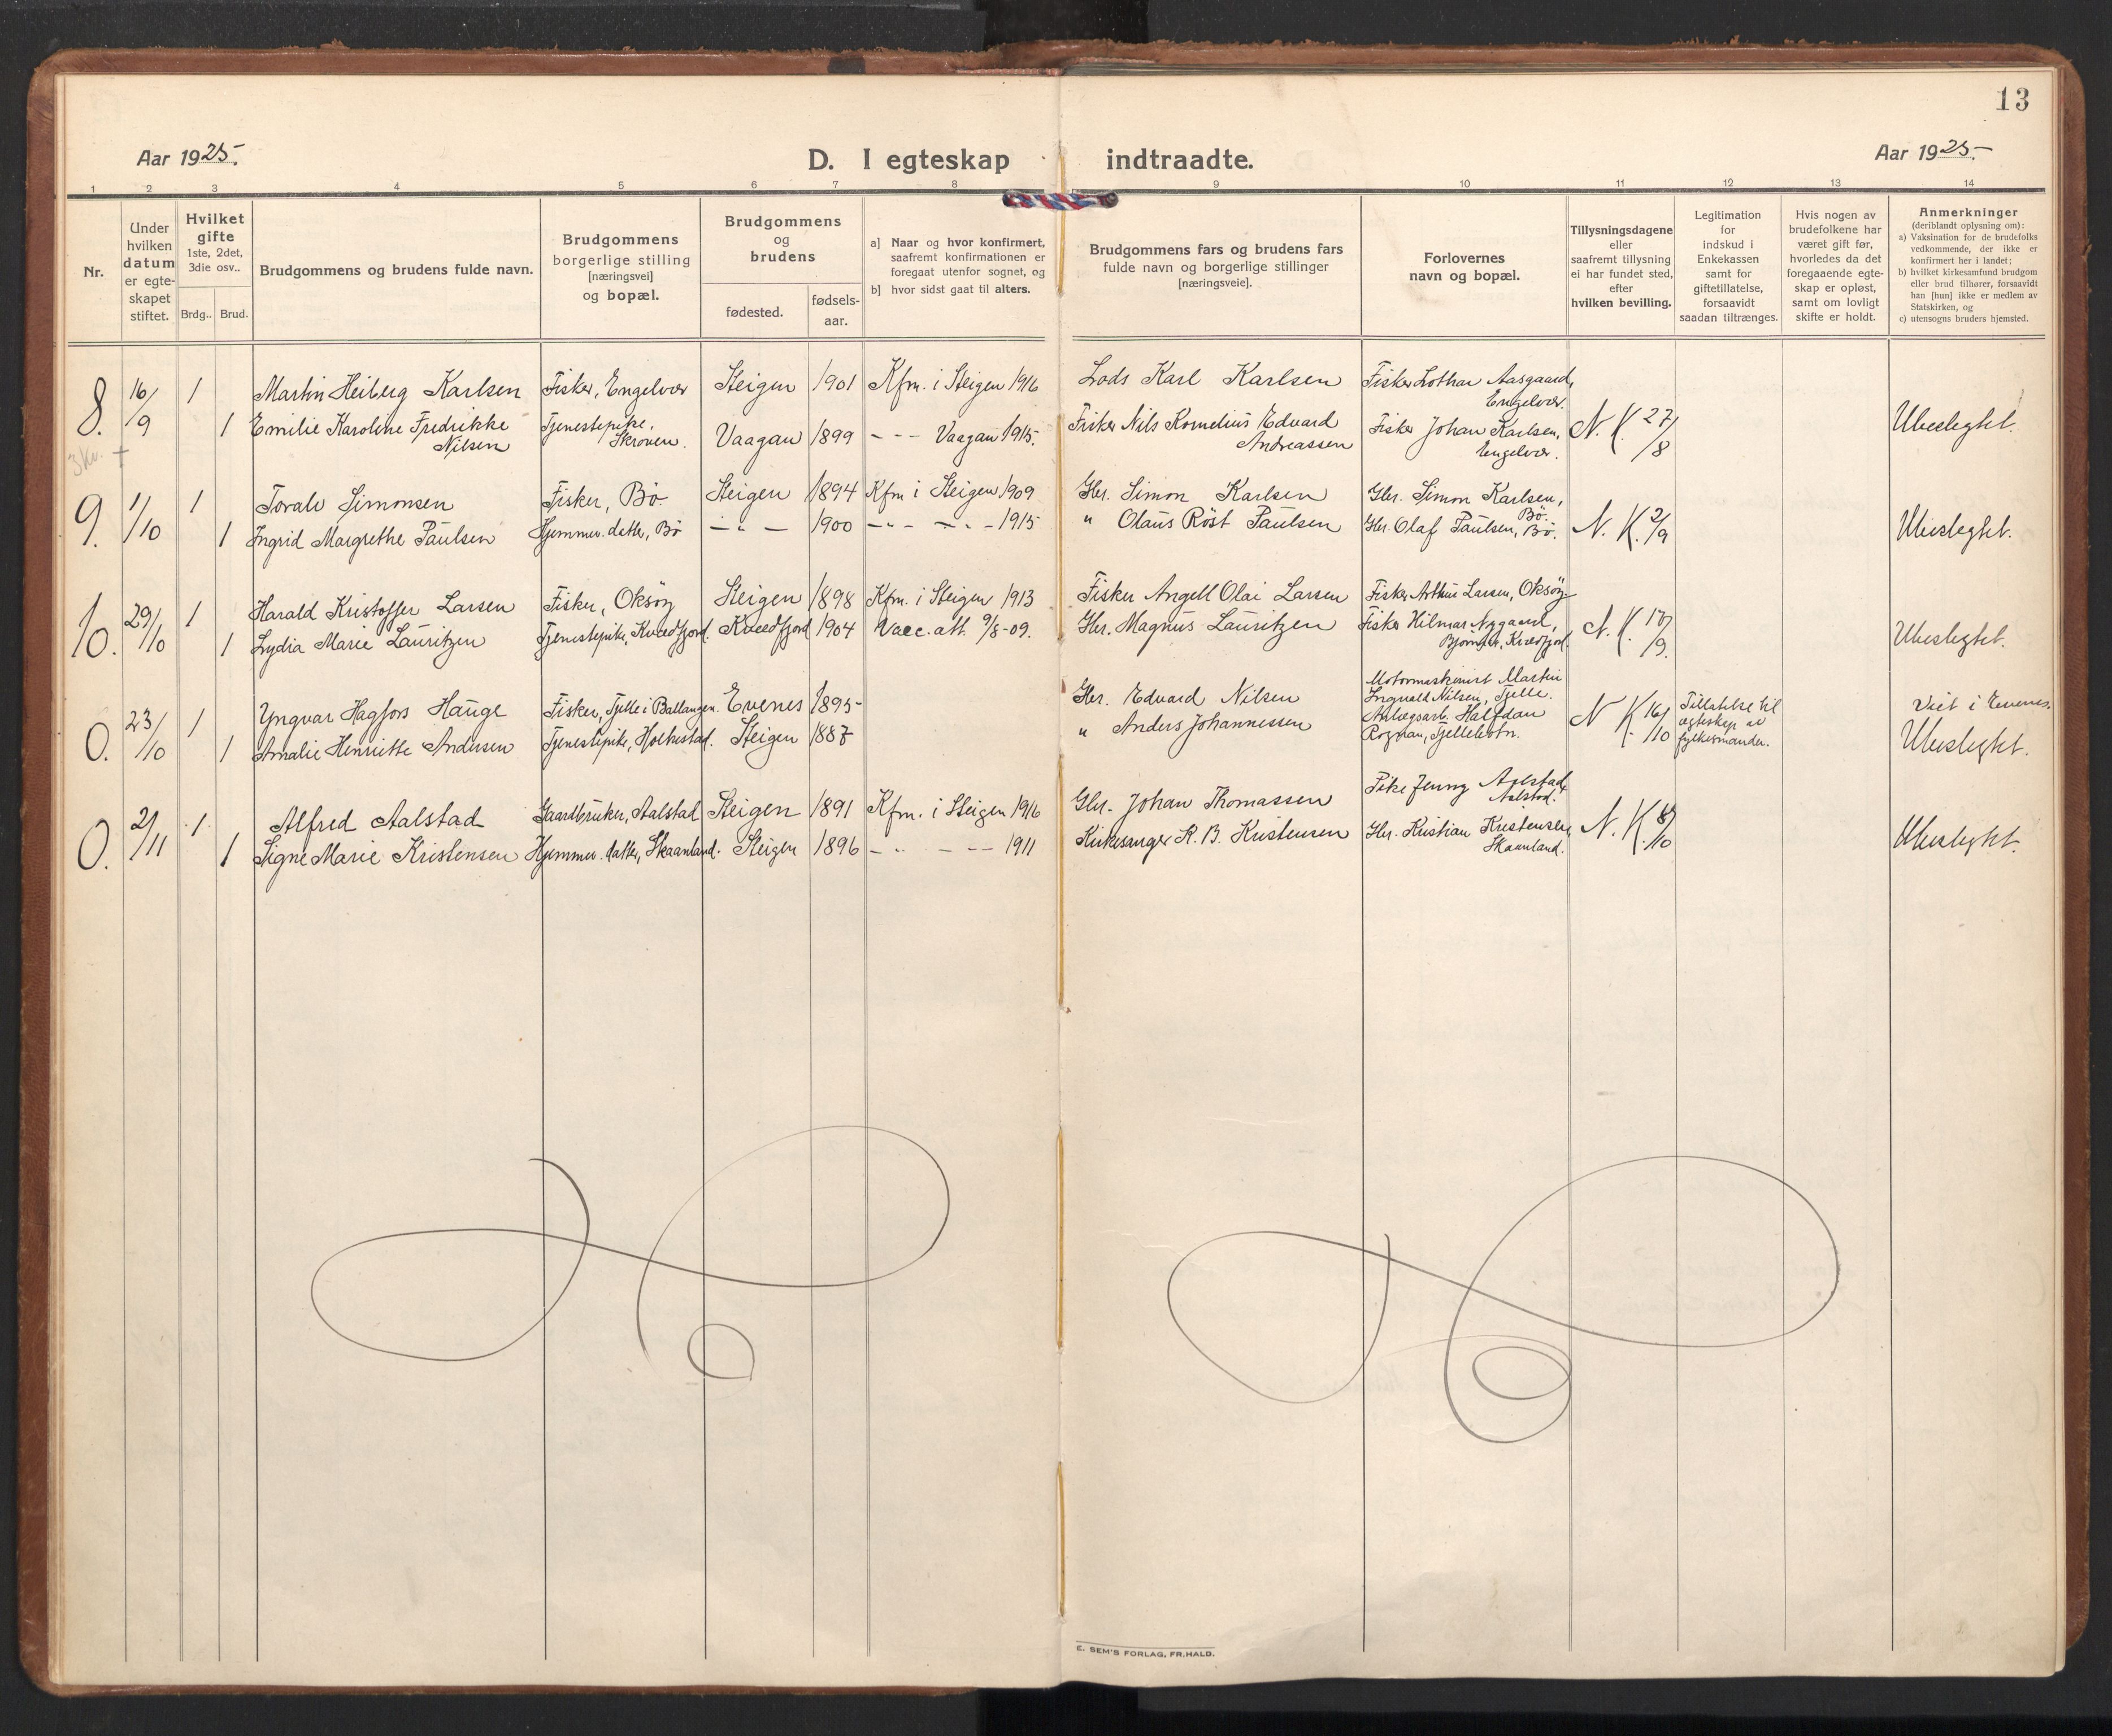 13
Aar 1925.
D. I egteskap indtraadte.
Aar 1925.
1 2 3 4 5 6 7 8 9 10 11 12 13 14
Nr.
Under hvilken datum er egte-skapet stiftet.
Hvilket gifte
1ste, 2det, 3die osv..
Brdg.. Brud.
Brudgommens og brudens fulde navn.
Brudgommens borgerlige stilling [næringsvei] og bopæl.
Brudgommens og brudens
fødested. fødsels-aar.
a] Naar og hvor konfirmert, saafremt konfirmationen er foregaat utenfor sognet, og
b] hvor sidst gaat til alters.
Brudgommens fars og brudens fars fulde navn og borgerlige stillinger [næringsveie].
Forlovernes navn og bopæl.
Tillysningsdagene eller saafremt tillysning ei har fundet sted, efter hvilken bevilling.
Legitimation for indskud i Enkekassen samt for giftetillatelse, forsaavidt saadan tiltrænges.
Hvis nogen av brudefolkene har været gift før, hvorledes da det foregaaende egte-skap er opløst, samt om lovligt skifte er holdt.
Anmerkninger
(deriblandt oplysning om):
a) Vaksination for de brudefolks vedkommende, der ikke er konfirmert her i landet;
b) hvilket kirkesamfund brudgom eller brud tilhører, forsaavidt han [hun] ikke er medlem av Statskirken, og
c) utensogns bruders hjemsted.
8. 16/9 1 Martin Heiberg Karlsen Fisker, Engelvær Steigen 1901 Kfm. i Steigen 1916 Lods Karl Karlsen Fisker Lothar Aasgaard, Engelvær.
1 Emilie Karoline Fredrikke Nilsen Tjenestepike, Skroven. Vaagan 1899 - - - Vaagan 1915. Fisker Nils Kornelius Edvard Andreassen Fisker Johan Karlsen, Engelvær. N. K. 27/8 Ubeslegtet.
3 kv. +
9. 1/10 1 Toralv Simonsen Fisker, Bö. Steigen 1894 Kfm i Steigen 1909 Gbr. Simon Karlsen Gbr. Simon Karlsen, Bö.
1 Ingrid Margrethe Paulsen Hjemmev. datter, Bö — " — 1900 - " - - " - 1915 " Olaus Röst Paulsen Gbr. Olaf Paulsen, Bö. N. K. 2/9 Ubeslegtet.
10. 29/10 1 Harald Kristoffer Larsen Fisker, Oksöy Steigen 1898 Kfm. i Steigen 1913 Fisker Angell Olai Larsen Fisker Arthur Larsen, Oksöy
1 Lydia Marie Lauritzen Tjenestepike, Kvædfjord. Kvædfjord 1904 Vacc. att. 9/8-09. Gbr. Magnus Lauritzen Fisker Hilmar Nygaard, Kvædfjord. N. K. 17/9. Ubeslegtet.
0. 23/10 1 Yngvar Hagfors Hauge Fisker, Tjelle i Ballangen. Evenes 1895 Gbr. Edvard Nilsen Motormaskinist Martin Ingvald Nilsen, Tjelle.
1 Amalie Henriette Andersen Tjenestepike, Holkestad. Steigen 1887 " Anders Johannessen Anlægsarb. Halfdan Rognan, Tjellebotn. N. K. 16/10 Tillatelse til egteskap av fylkesmanden. Viet i Evenes. Ubeslegtet.
0. 2/11 1 Alfred Aalstad Gaardbruker, Aalstad Steigen 1891 Kfm. i Steigen 1916 Gbr. Johan Thomassen Pike Jenny Aalstad, Aalstad.
1 Signe Marie Kristensen Hjemmev. datter, Skaanland. Steigen 1896 - " - - - 1911 Kirkesanger R. B. Kristensen Gbr. Kristian Kristensen, Skaanland. N. K. 8/10 Ubeslegtet.
E. SEM'S FORLAG, FR.HALD.